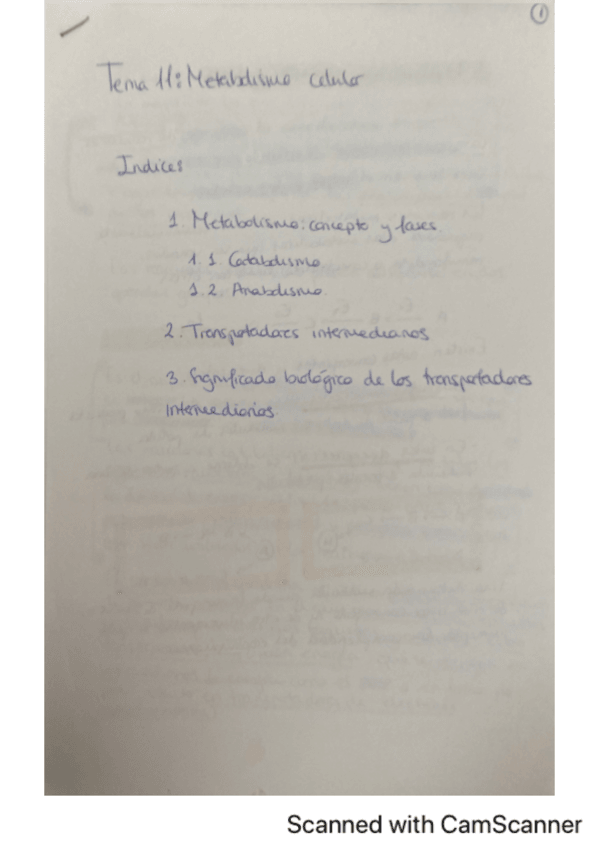 1
Tema 11: Metabolismo celular
Indices
1. Metabolismo: concepto y fases
1.1 Catabolismo
1.2. Anabolismo.
2. Transportadores intermediarios
3. Significado biológico de los transportadores
intermediarios
Scanned with CamScanner